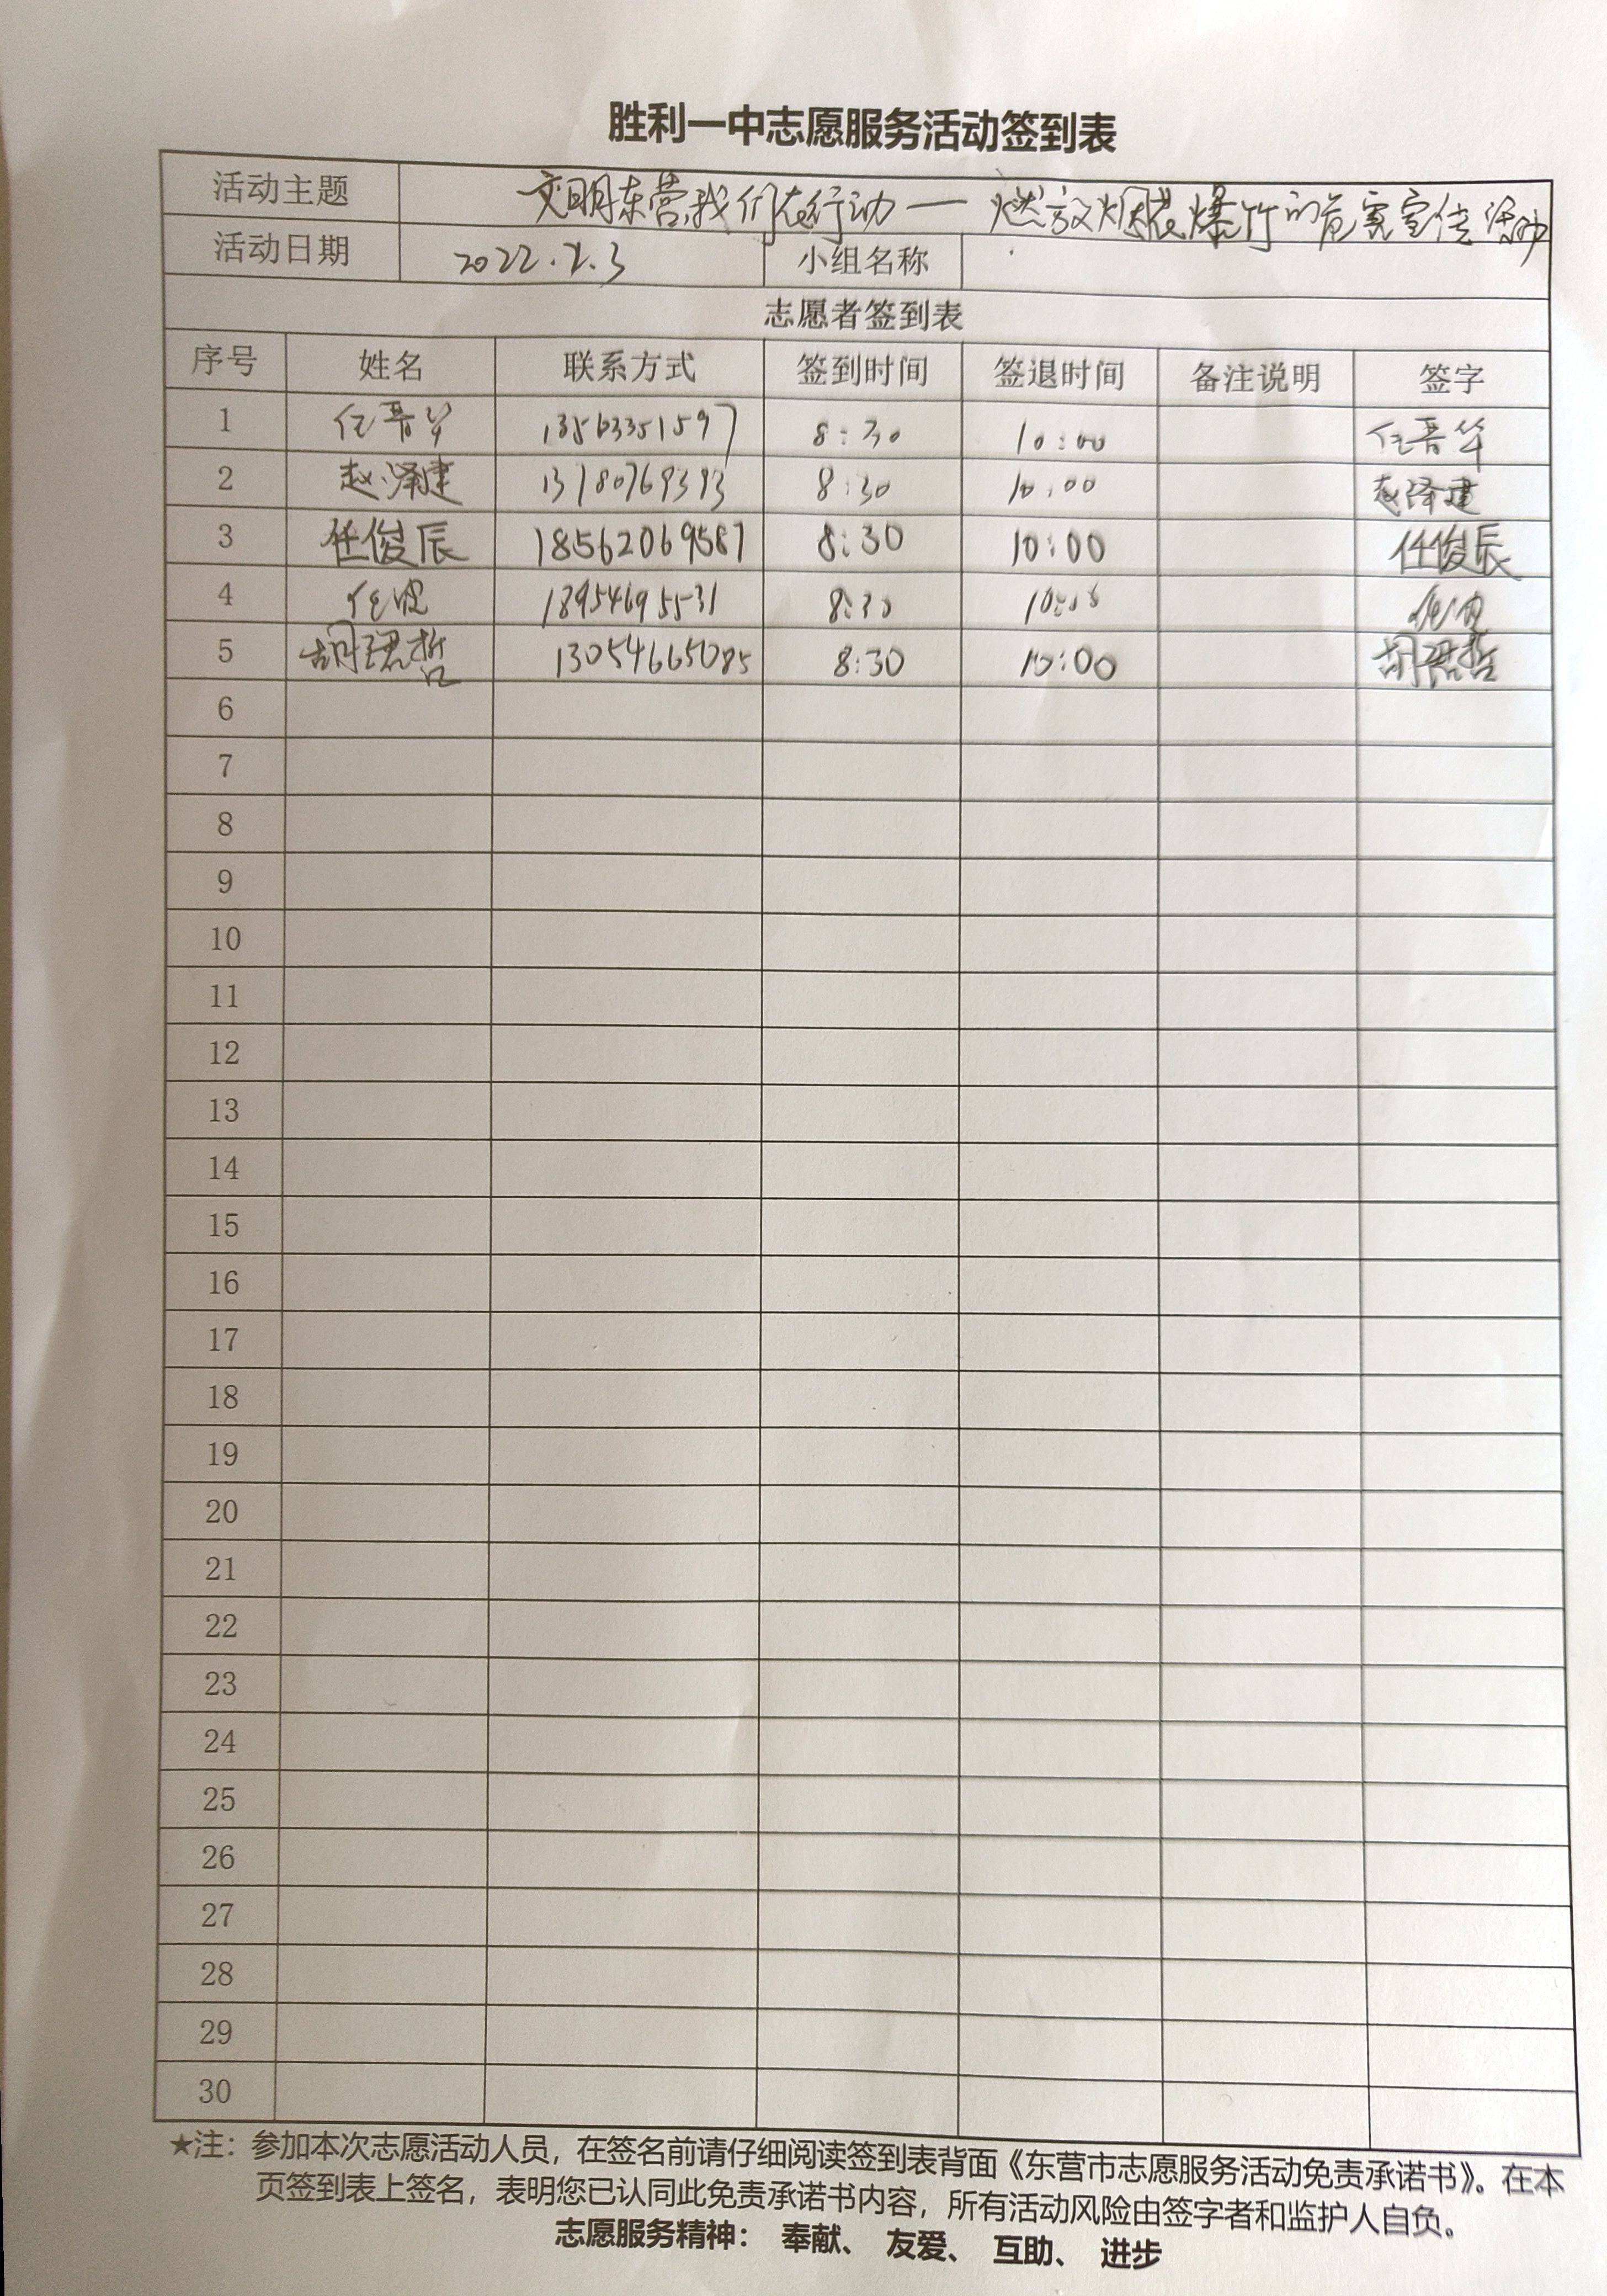 胜利一中志愿服务活动签到表
活动主题 文明东营,我们在行动 — 燃放烟花爆竹的危害宣传活动
活动日期 2022.2.3 小组名称
志愿者签到表
序号 姓名 联系方式 签到时间 签退时间 备注说明 签字
1 任晋华 13563351597 8:30 10:00 任晋华
2 赵泽建 13780769393 8:30 10:00 赵泽建
3 任俊辰 18562069587 8:30 10:00 任俊辰
4 18954695531 8:30 10:00
5 胡珺哲 13054665085 8:30 10:00 胡珺哲
6
7
8
9
10
11
12
13
14
15
16
17
18
19
20
21
22
23
24
25
26
27
28
29
30
★注：参加本次志愿活动人员，在签名前请仔细阅读签到表背面《东营市志愿服务活动免责承诺书》。在本
页签到表上签名，表明您已认同此免责承诺书内容，所有活动风险由签字者和监护人自负。
志愿服务精神： 奉献、 友爱、 互助、 进步